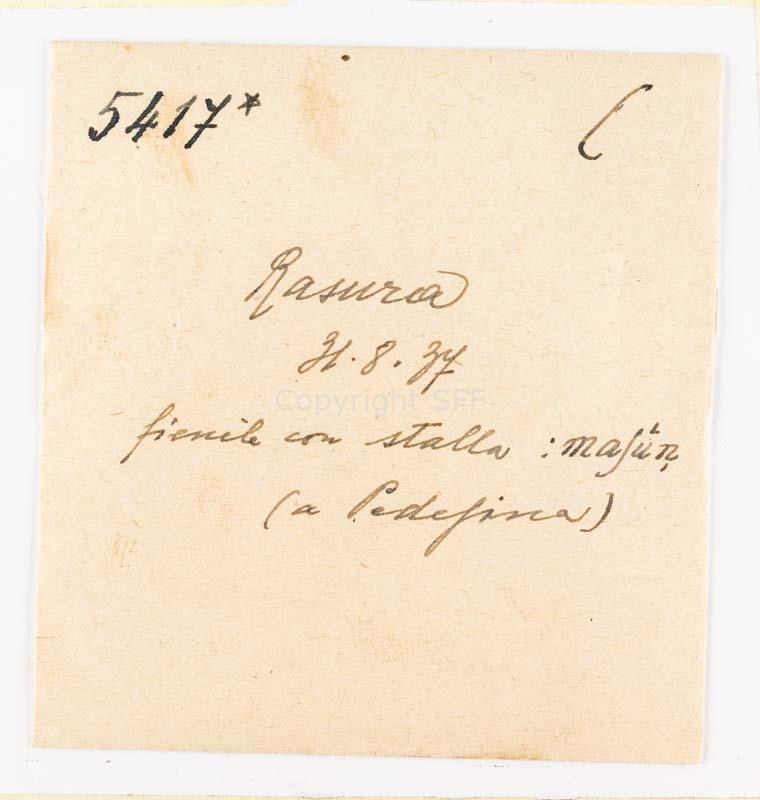 5417* C
Rasura
31.8.37
Copyright SFF
fienile con stalla : maʃǜṇ
(a Pedesina)